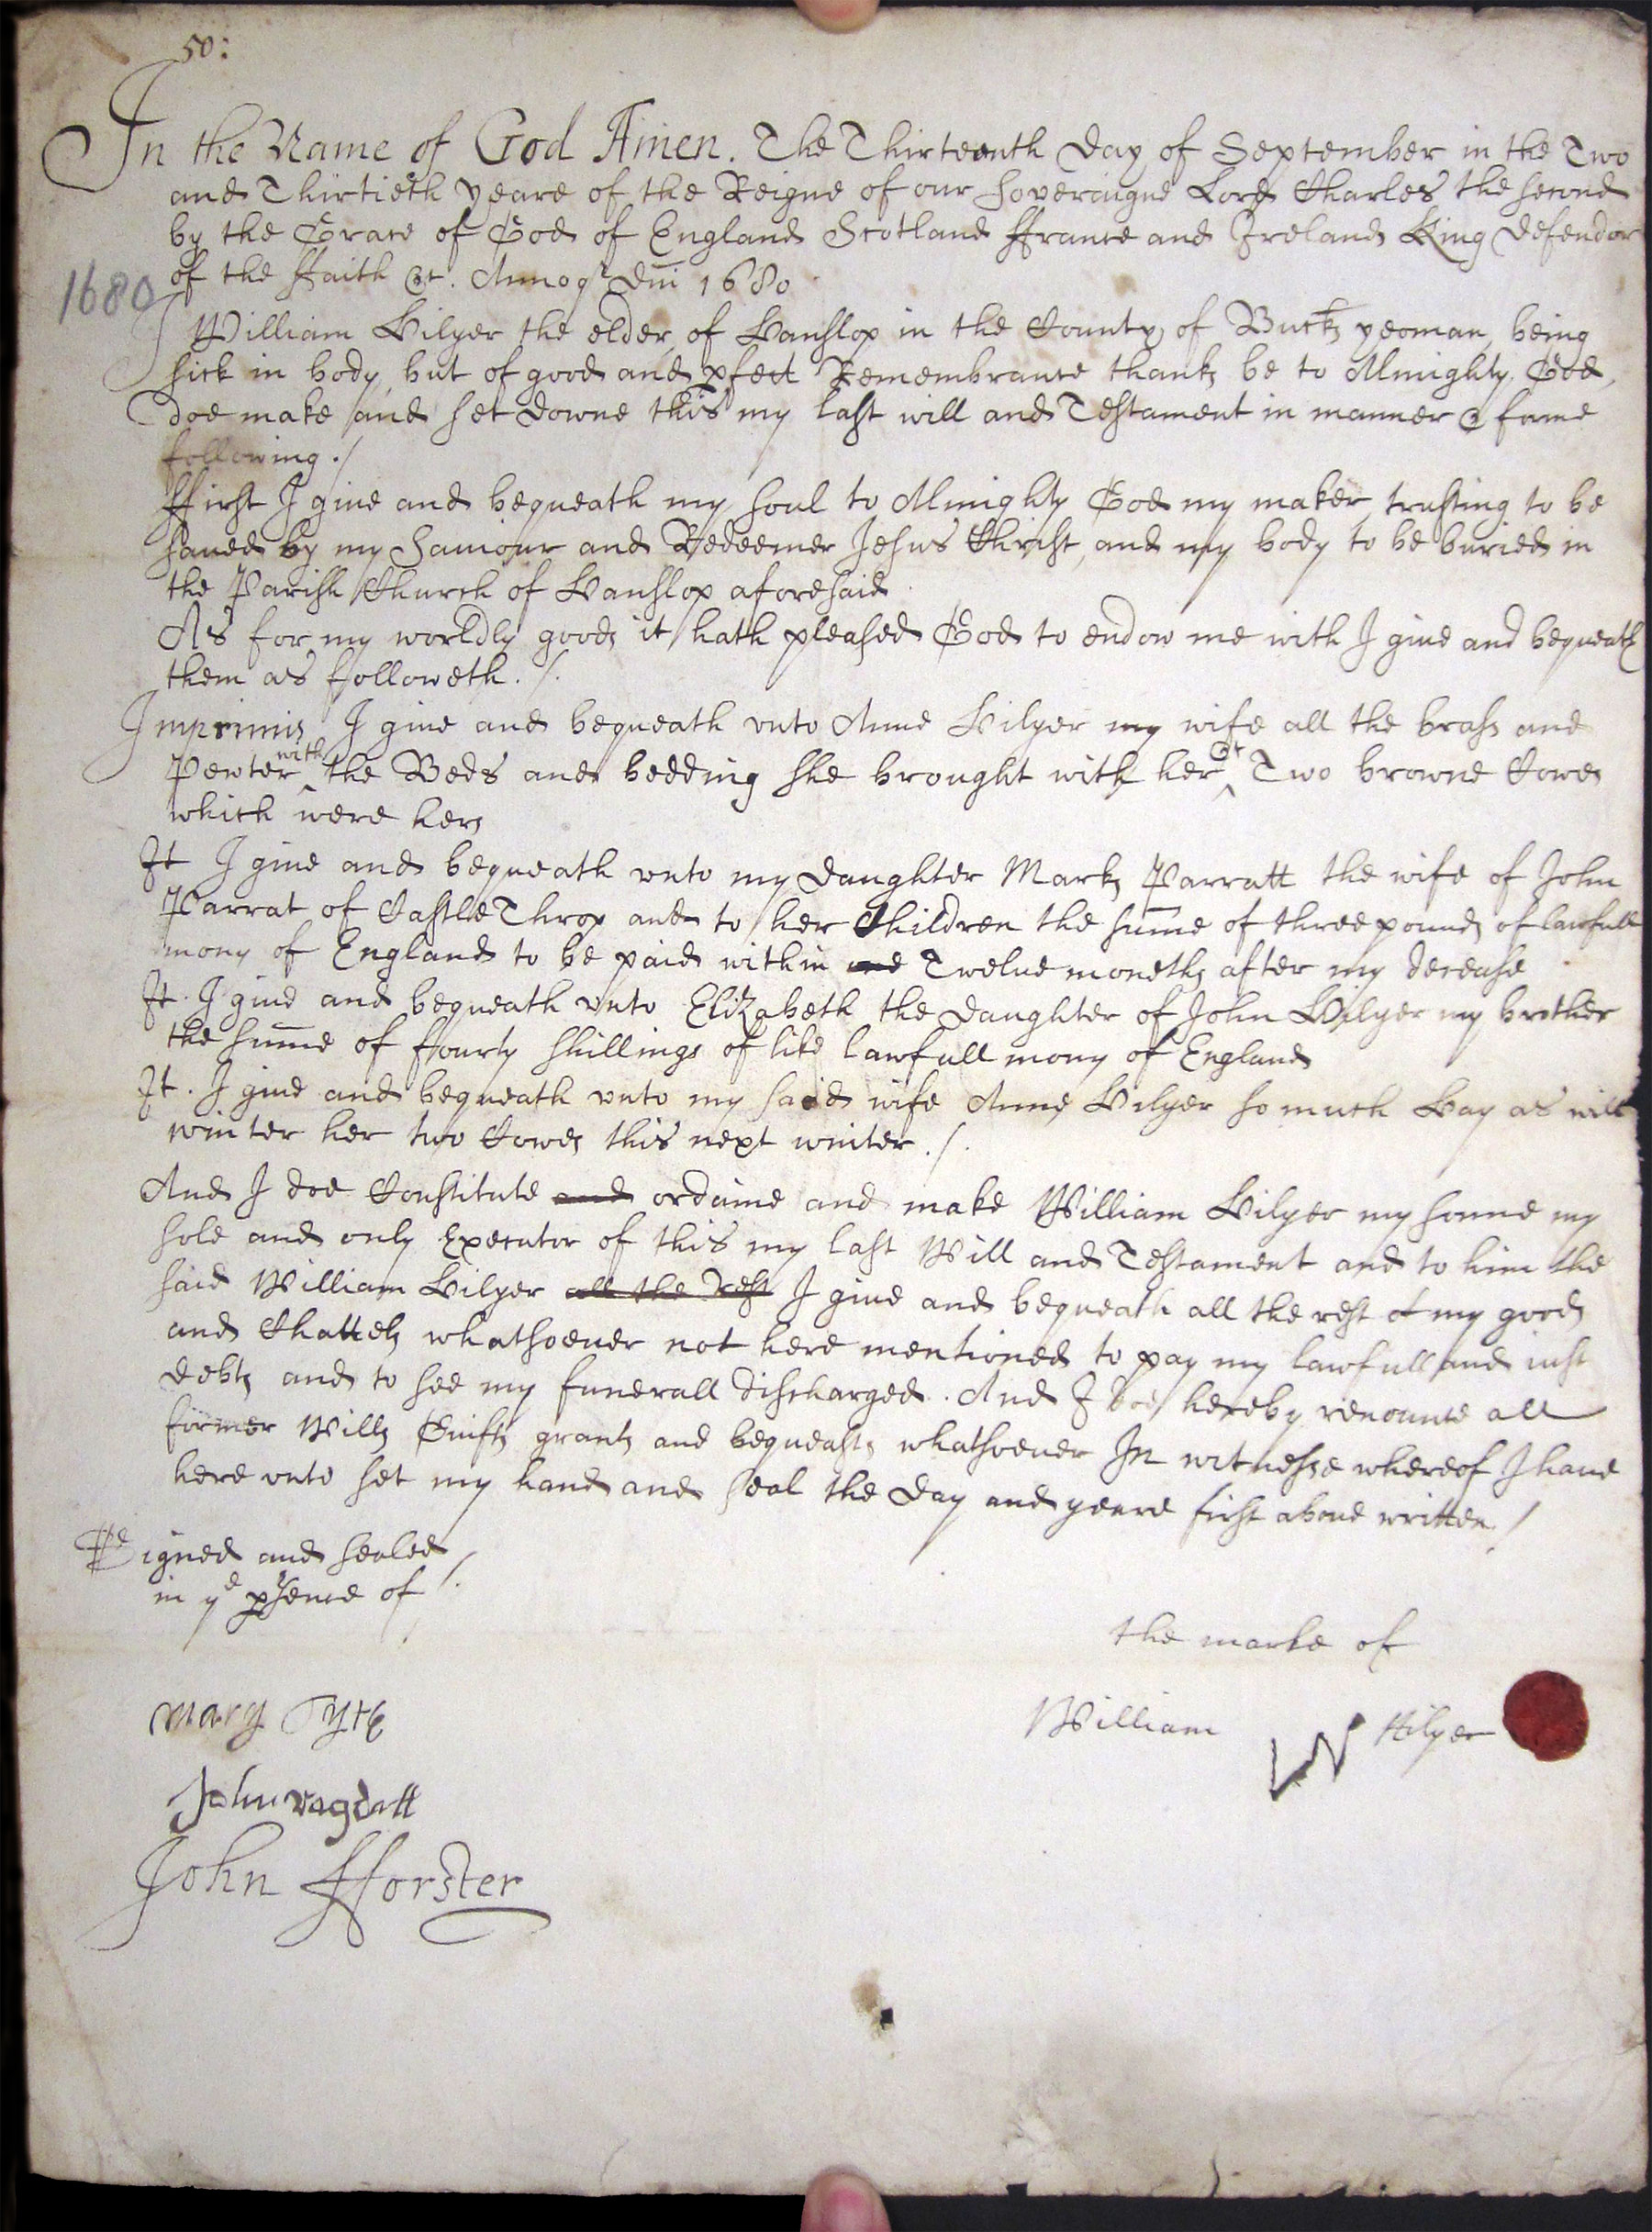 50:
In the Name of God Amen. The Thirteenth Day of September in the Two
and Thirtieth yeare of the Reigne of our Soveraigne Lord Charles the second
by the Grace of God of England Scotland ffrance and Ireland King Defendor
of the ffaith &c. Annoq Dni 1680
1680
I William Hilyer the elder of Hanslop in the County of Bucks yeoman, being
sick in body but of good and pfect Remembrance thanks be to Almighty God,
doe make and set downe this my last will and Testament in manner & forme
following ./
ffirst I giue and bequeath my soul to Almighty God my maker trusting to be
saued by my Sauiour and Redeemer Jesus Christ, and my body to be buried in
the Parish Church of Hanslop aforesaid
As for my worldly goods it hath pleased God to endow me with I giue and bequeath
them as followeth ./.
Imprimis I giue and bequeath vnto Anne Hilyer my wife all the brass and
Pewter with the Beds and bedding she brought with her & Two browne Cowes
which were hers
It I giue and bequeath vnto my Daughter Marks Parratt the wife of John
Parrat of Castle Throp and to her Children the sume of three pounds of lawfull
mony of England to be paid within one Twelue moneths after my decease
It. I giue and bequeath vnto Elizabeth the Daughter of John Hilyer my brother
the sume of fourty shillings of like lawfull mony of England
It. I giue and bequeath vnto my said wife Anne Hilyer so much Hay as will
winter her two Cowes this next winter ./.
And I doe Constitute and ordaine and make William Hilyer my sonne my
sole and only Executor of this my last Will and Testament and to him the
said William Hilyer all the rest I giue and bequeath all the rest of my goods
and Chattels whatsoeuer not here mentioned to pay my lawfull and iust
debts and to see my funerall discharged. And I doe hereby renounce all
former Wills Guifts grants and bequeasts whatsoeuer In witnesse whereof I haue
here vnto set my hand and seal the Day and yeare first aboue written /
Signed and sealed
in ye psence of /.
the marke of
William W Hilyer
Mary Tyte
John ragdatt
John fforster